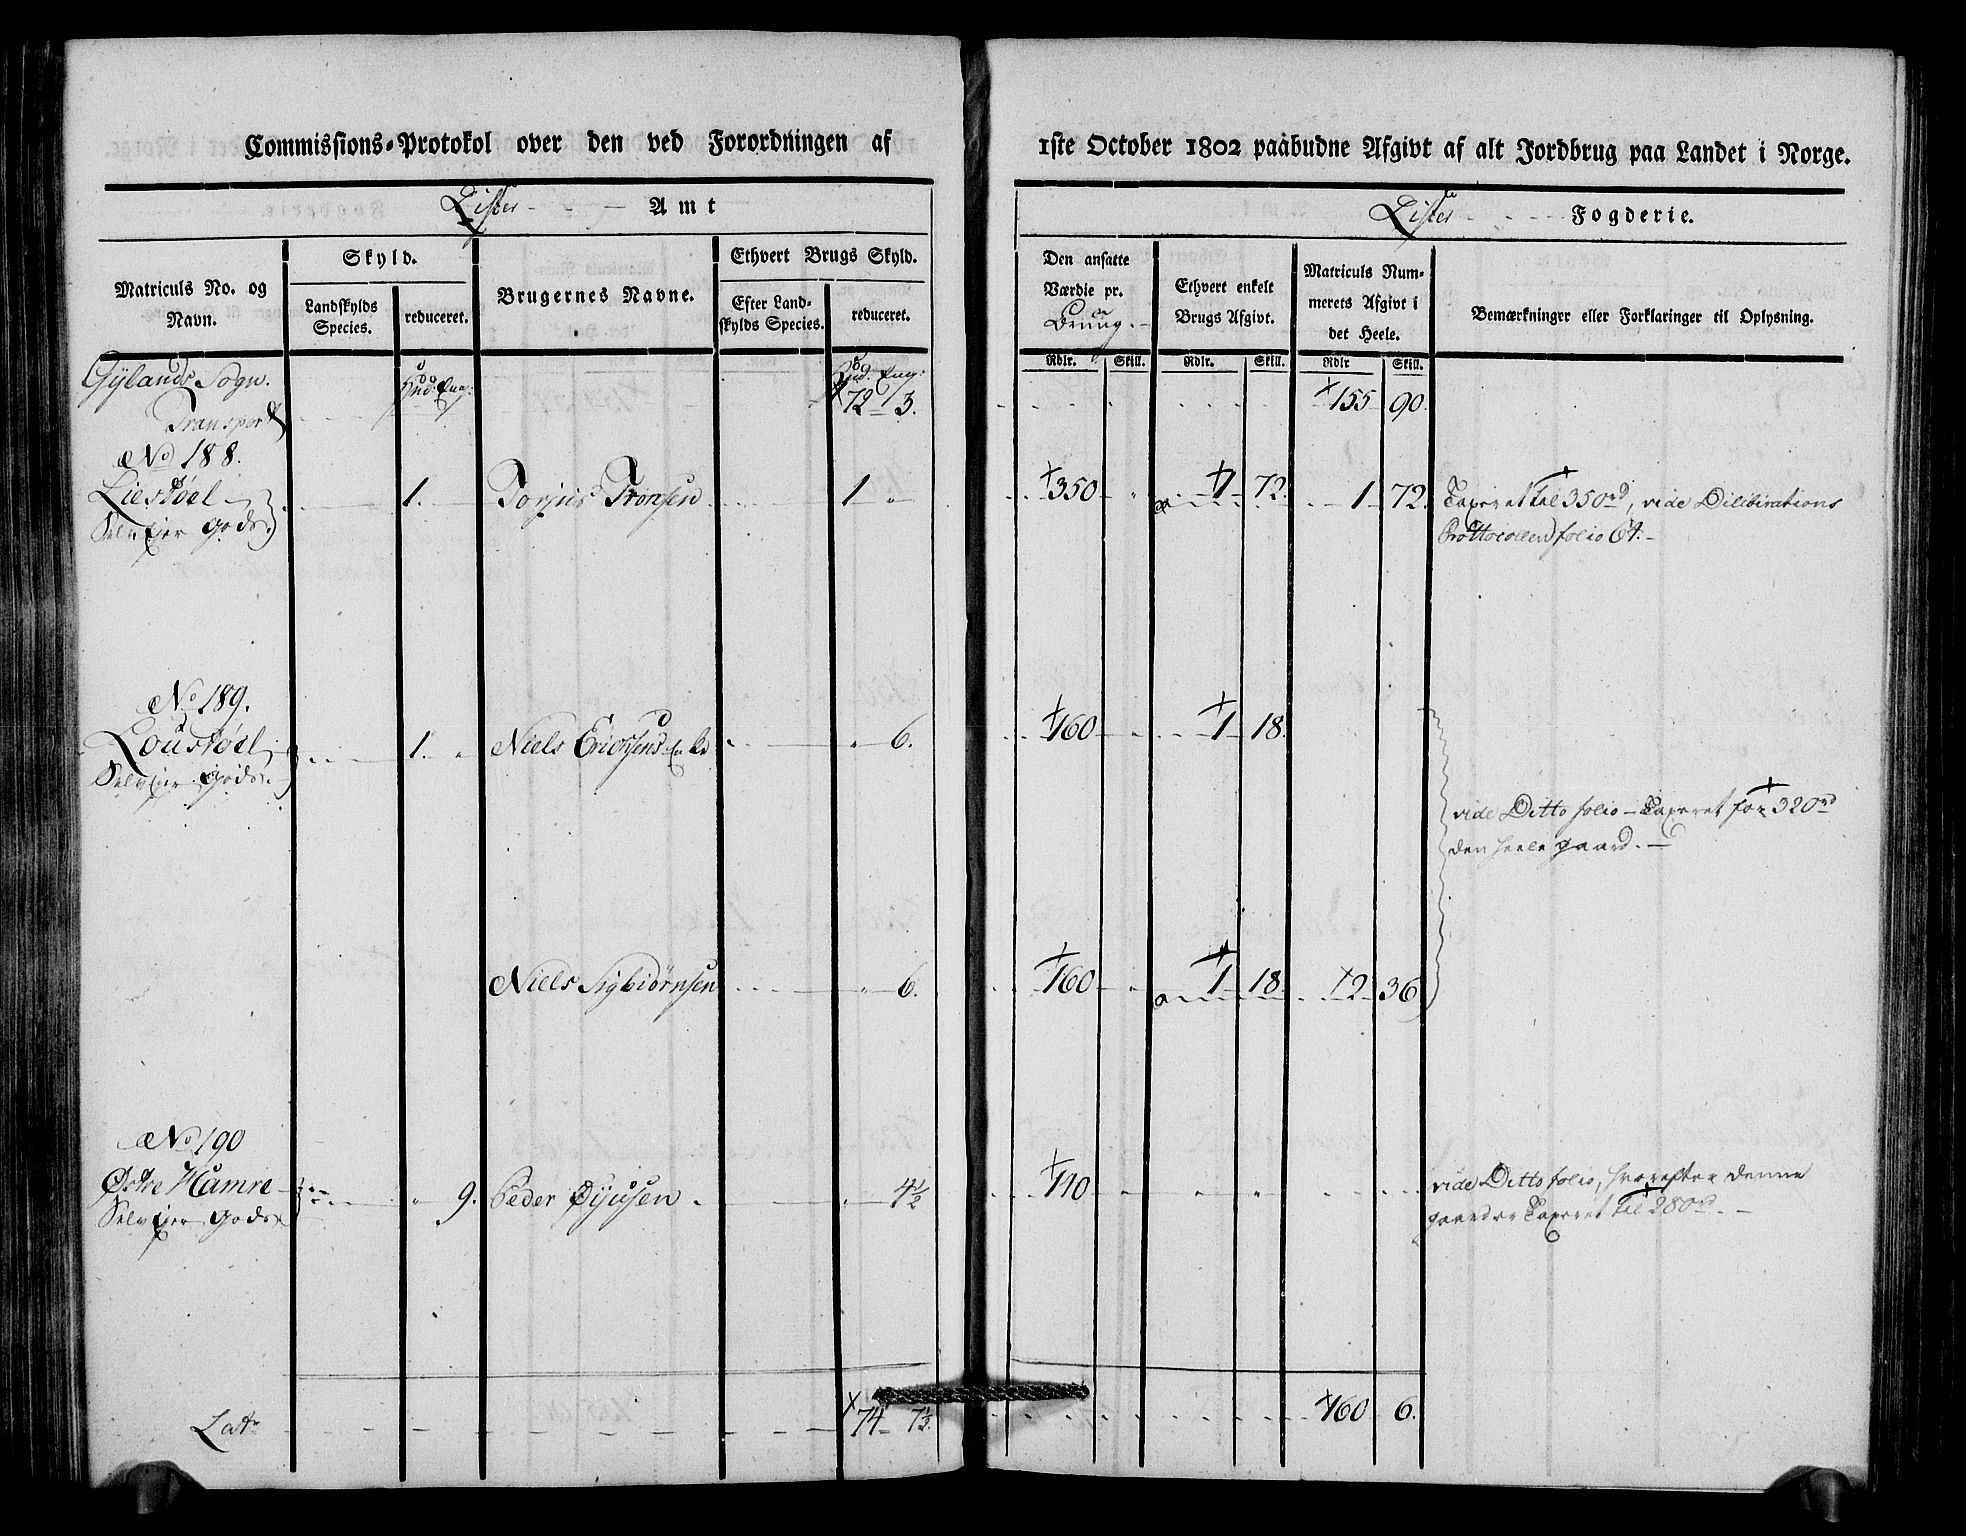 Commissions-Protokol over den ved Forordningen af
1ste October 1802 paabudne Afgivt af alt Jordbrug paa Landet i Norge.
Lister Amt
Lister Fogderie.
Matriculs No. og
Navn.
Skyld.
Landskylds
Species.
reduceret.
Brugernes Navne.
Ethvert Brugs Skyld.
Efter Land-
skylds Species.
reduceret.
Den ansatte
Værdie pr.
Brug.
Ethvert enkelt
Brugs Afgivt.
Matriculs Num-
merets Afgivt i
det Heele.
Bemærkninger eller Forklaringer til Oplysning.
Rdlr. Skill. Rdlr. Skill. Rdlr Skill.
Gylands Sogn. Hud. Eng: Hud. Eng:
Transport 72 3. 155 90.
No 188.
Liestøel 1. Torjus Tronsen 1 " 350 " 1 72 1 72. Taxeret til 350rd, vide Diliberations
Selv Ejer Gods. Prottocollen folio 64.
No 189.
Loustøel 1. " Niels Erichsens Enke " 6. 160 1 18
Selv Ejer Gods.
vide Ditto folio – Taxeret for 320rd
den heele gaard. –
Niels Sigbiørnsen " 6. 160 " 1 18 2 36
No 190
Østre Hamre " 9. Peder Øyusen " 4½ 110 " vide Ditto folio, hvorefter denne
Selv Ejer Gods gaard er Taxeret til 280rd. –
Lat 74 7½. 160 6.